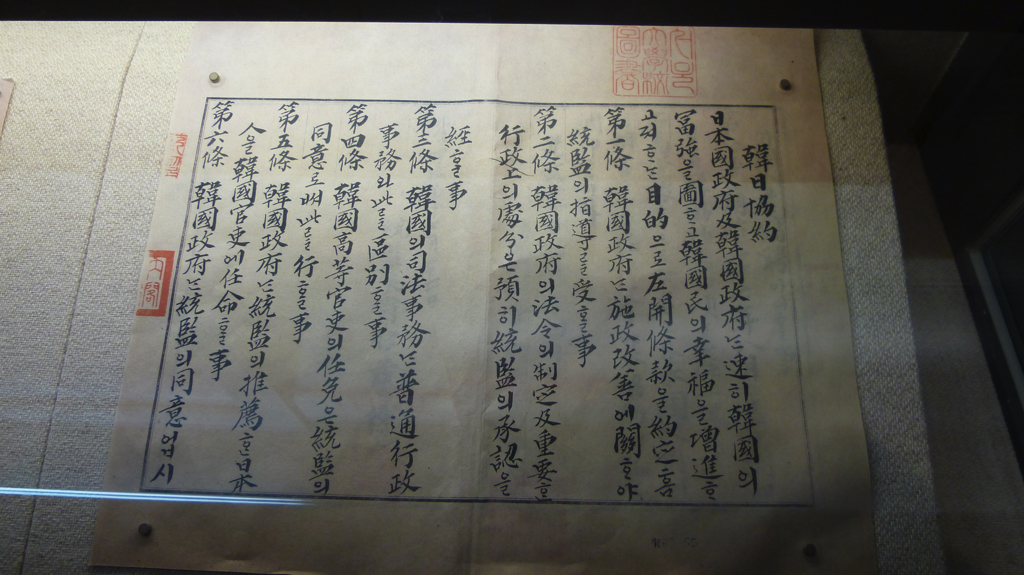 韓日協約
日本國政府及韓國政府는速히韓國의
富强을圖ᄒᆞ고韓國民의幸福을增進ᄒᆞ
고져ᄒᆞᄂᆞᆫ目的으로左開條款을約定홈
第一條 韓國政府는施政改善에關ᄒᆞ야
統監의指導를受ᄒᆞᆯ事
第二條 韓國政府의法令의制定及重要ᄒᆞᆫ
行政上의處分은預히統監의承認을
經ᄒᆞᆯ事
第三條 韓國의司法事務는普通行政
事務와此를區別ᄒᆞᆯ事
第四條 韓國高等官吏의任免은統監의
同意로써此를行ᄒᆞᆯ事
第五條 韓國政府는統監의推薦ᄒᆞᆫ日本
人을韓國官吏에任命ᄒᆞᆯ事
第六條 韓國政府는統監의同意업시